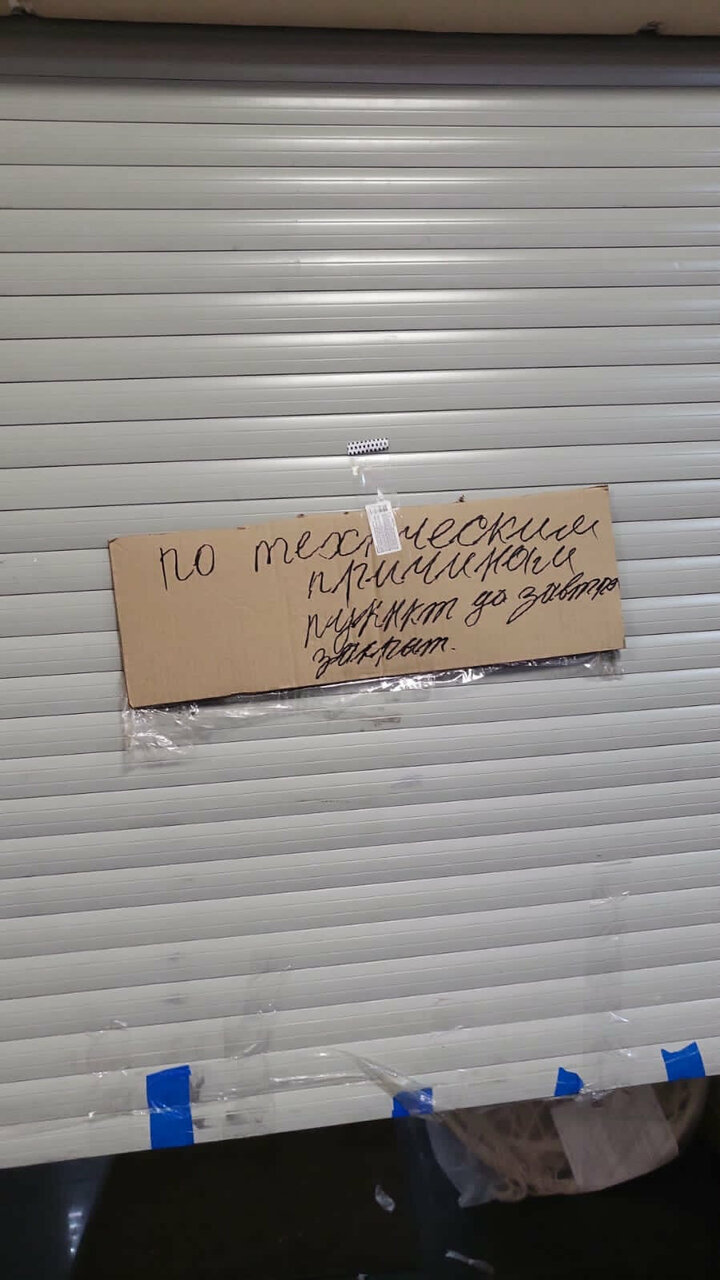 по техническим
причинам
пункнт до завтра
закрыт.